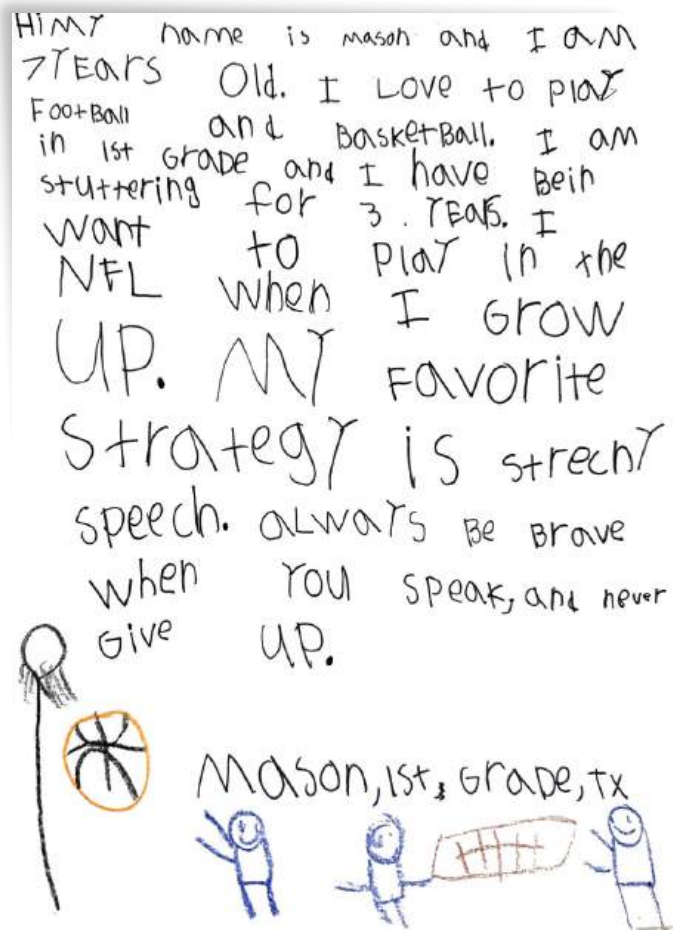 Hi MY name is mason and I am
7 YEARS Old. I Love to Play
FootBall and BasketBall. I am
in 1st GraDe and I have Bein
stuttering for 3. YEARS. I
want to Play in the
NFL when I Grow
UP. MY Favorite
StrategY is strechY
speech. ALWAYS Be Brave
when You speak, and never
Give UP.
Mason, 1st, GraDe, tx